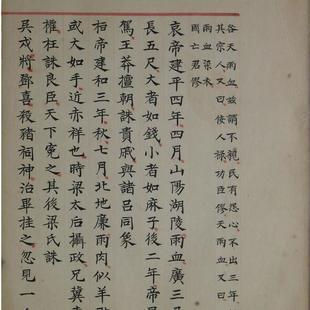 谷天雨血故謂不親民有怨心不出三年
其宗人又曰佞人祿功臣僇天雨血又曰
雨血染木
國亡君僇
哀帝建平四年四月山陽湖陵雨血廣三尺
長五尺大者如錢小者如麻子後二年帝
駕王莽擅朝誅貴戚與諸呂同象
桓帝建和三年秋七月北地廉雨肉似羊
或大如手近赤祥也時梁太后攝政兄冀專
權枉誅良臣天下冤之其後梁氏誅
吳戍將鄧喜殺豬祠神治畢挂之忽見一